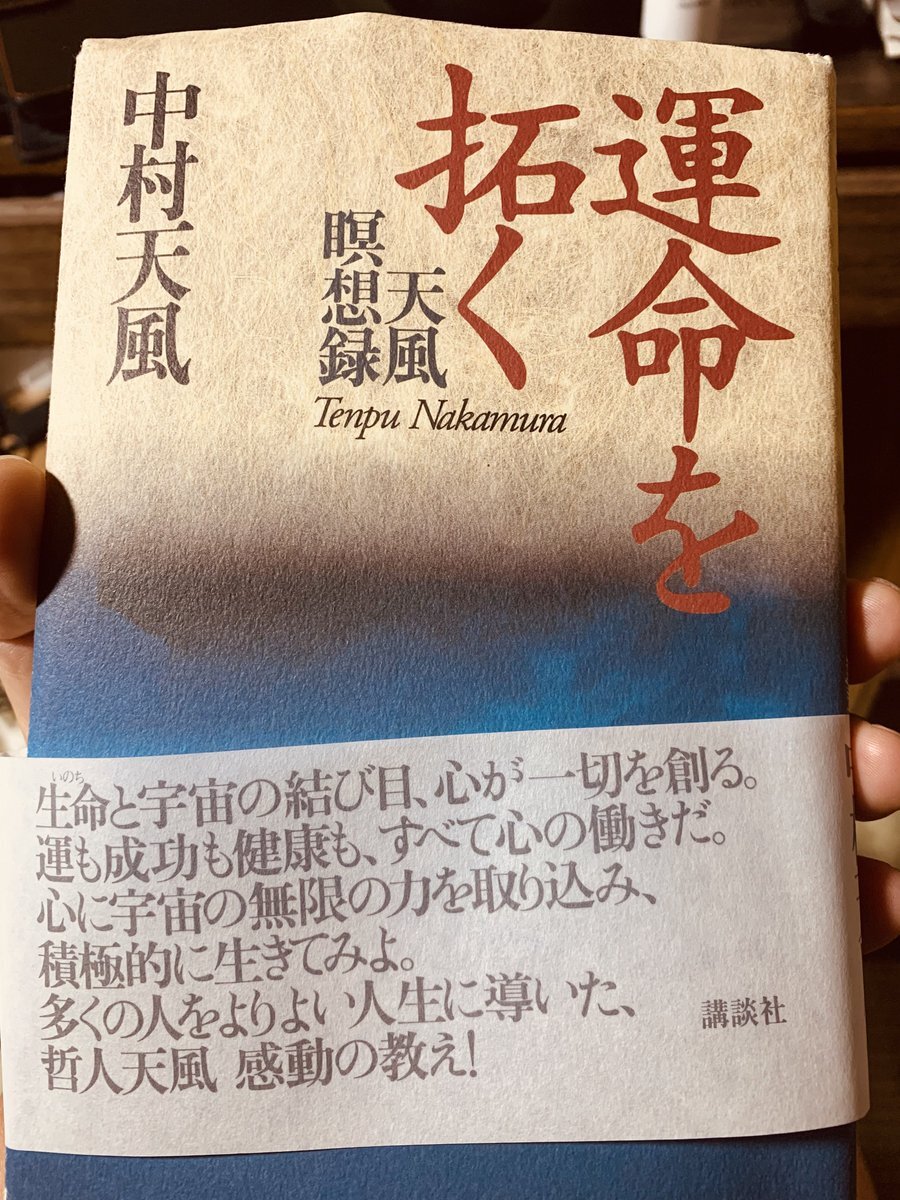 運命を
拓く
天風
瞑想録
Tenpu Nakamura
中村天風
いのち
生命と宇宙の結び目、心が一切を創る。
運も成功も健康も、すべて心の働きだ。
心に宇宙の無限の力を取り込み、
積極的に生きてみよ。
多くの人をよりよい人生に導いた、
哲人天風 感動の教え!
講談社